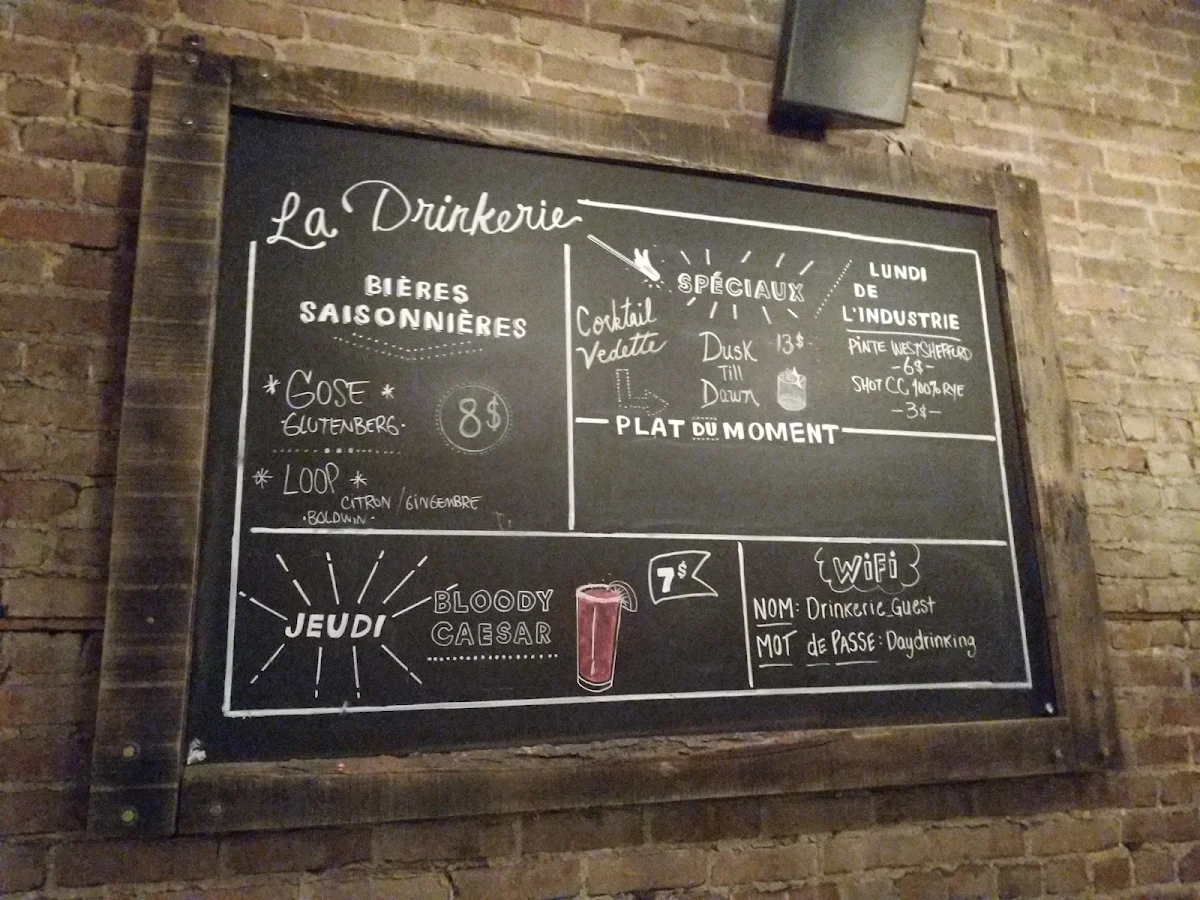 La Drinkerie
BIÈRES
SAISONNIÈRES
* GOSE *
GLUTENBERG
8$
* LOOP *
CITRON / GINGEMBRE
• BOLDWIN •
SPÉCIAUX
Cocktail
Vedette
Dusk
Till
Dawn
13$
LUNDI
DE
L'INDUSTRIE
PINTE WESTSHEFFORD
-6$-
SHOT CC, 100% RYE
-3$-
PLAT DU MOMENT
JEUDI
BLOODY
CAESAR
7$
WiFi
NOM: Drinkerie_Guest
MOT de PASSE: Daydrinking